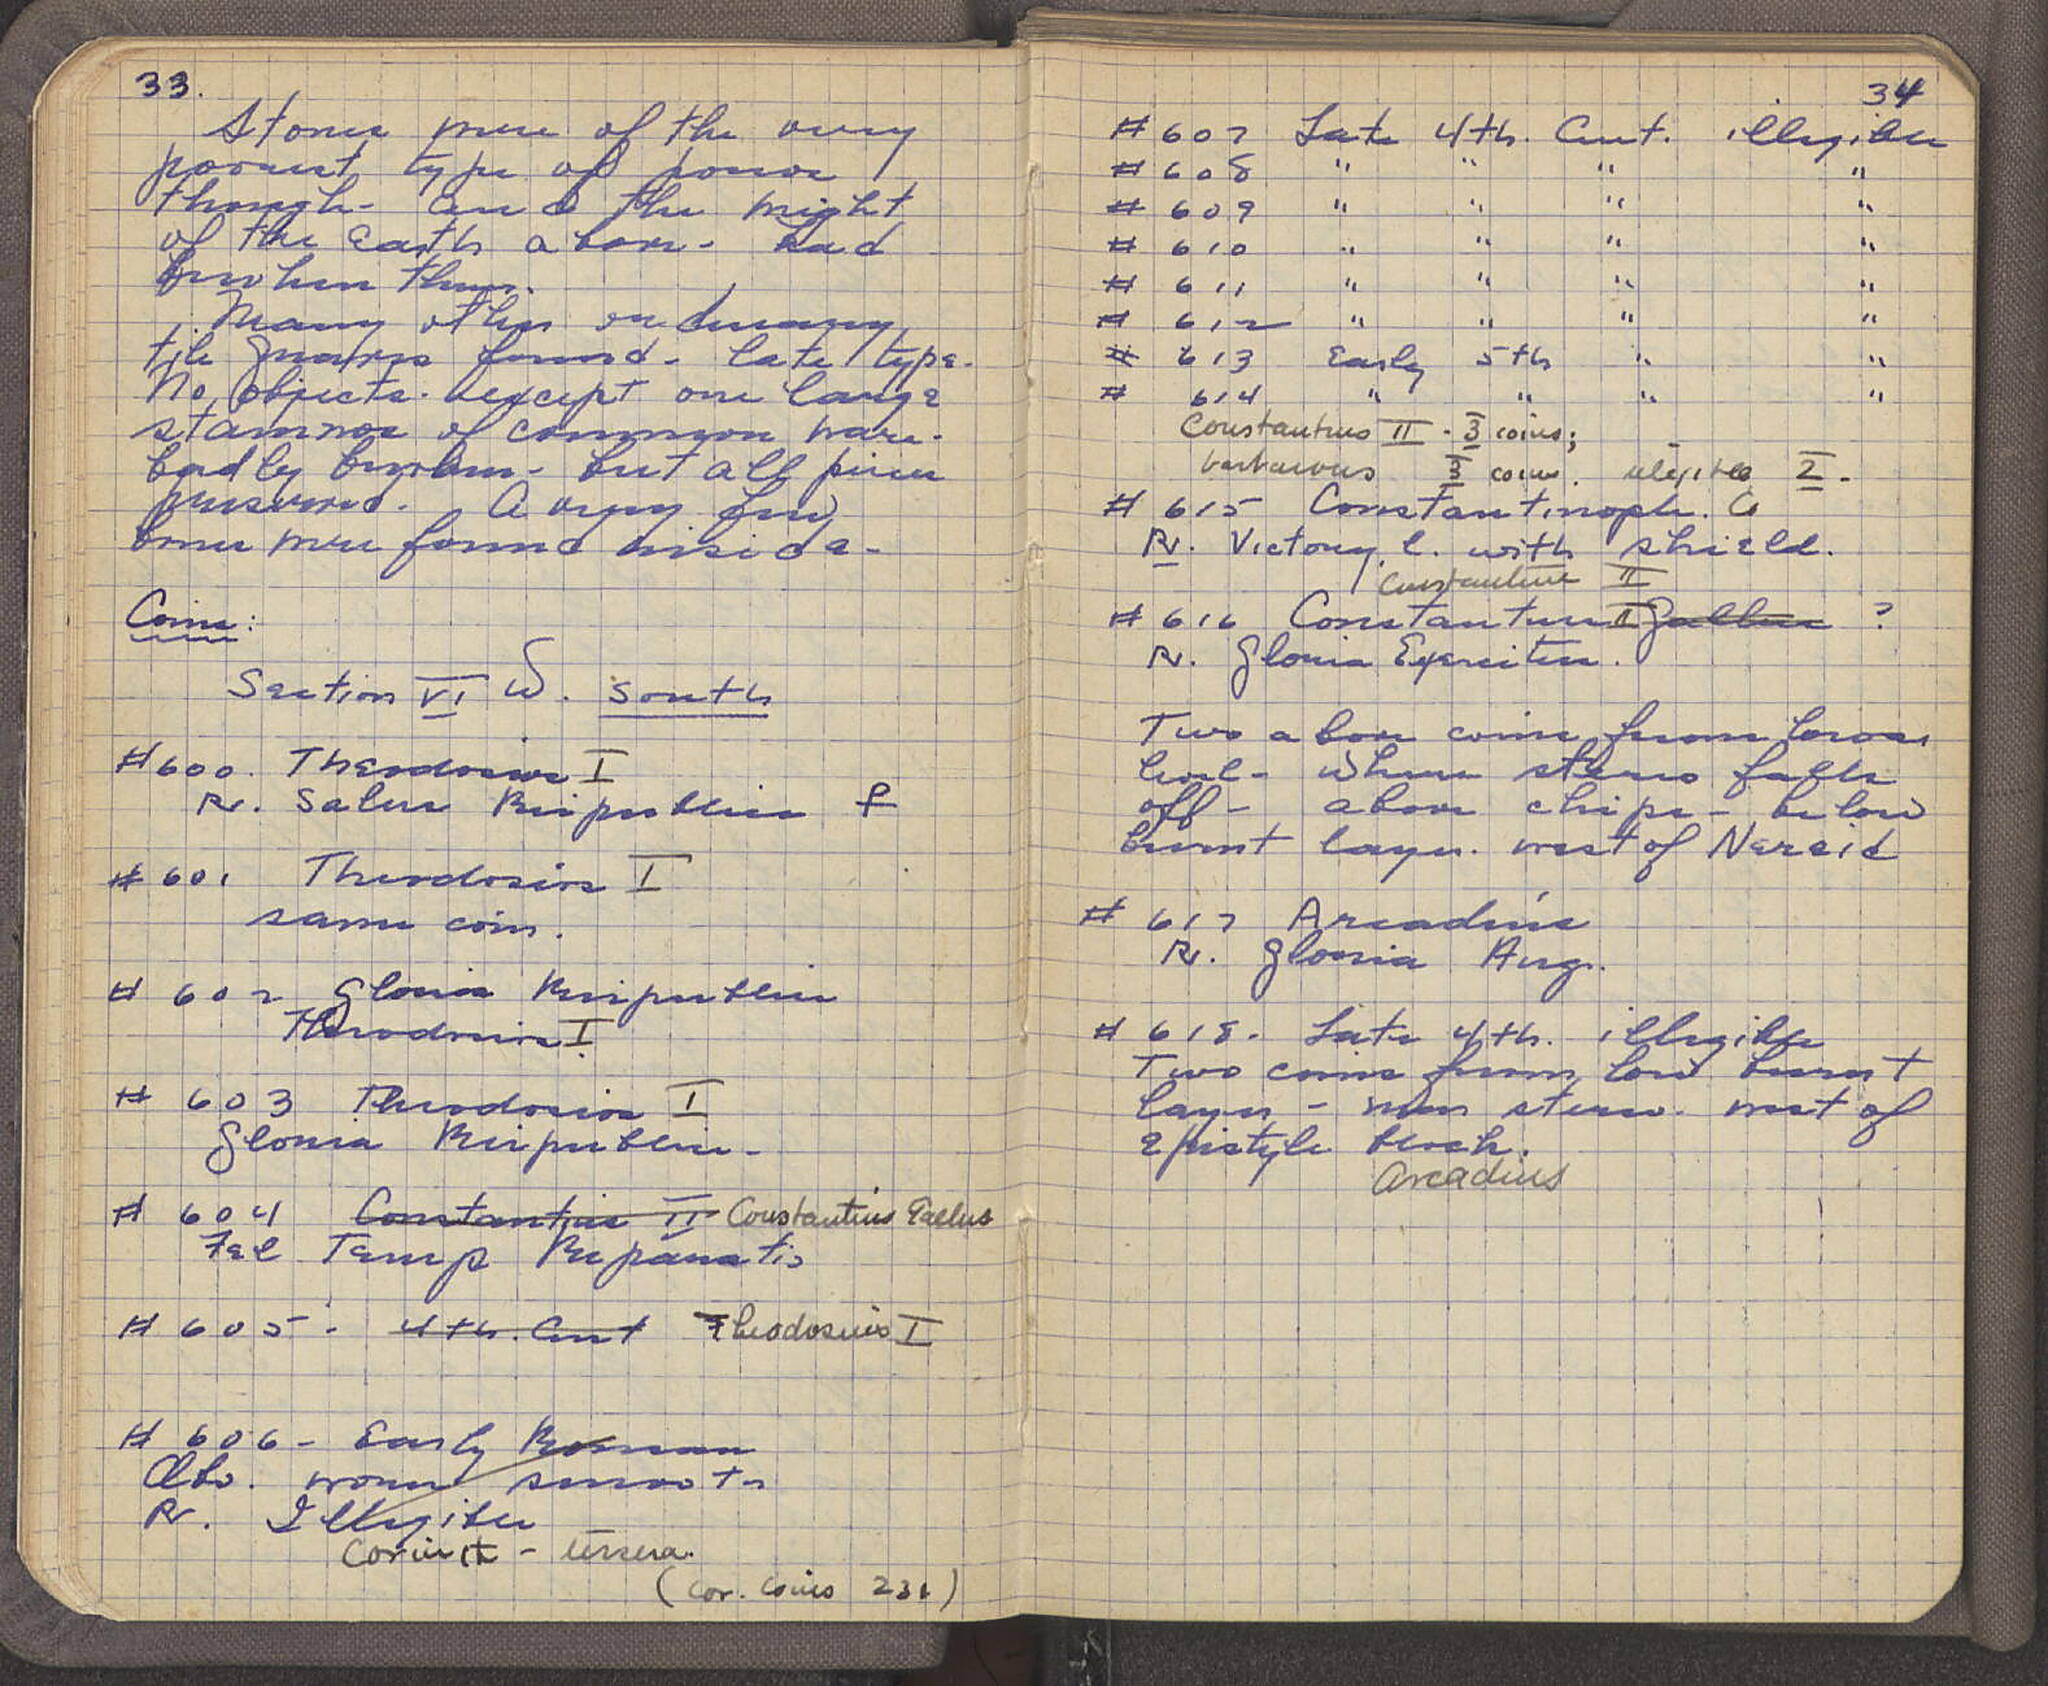 33.
Stones were of the very
poorest type of poros
though - and the weight
of the earth above - had
broken them.
Many other ordinary
tile graves found - late type.
No objects. except one large
stamnos of common ware -
badly broken - but all pieces
preserved. A very few
bones were found inside -
Coins:
Section VI W. South
#600. Theodosius I
Rv. Salus Reipublicae
#601 Theodosius I
same coin.
# 602 Gloria Reipublice
Theodosius I
# 603 Theodosius I
Gloria Reipublice -
# 604 Constantius II Constantius Gallus
Fel Temp Reparatio
# 605 - 4th. Cent Theodosius I
# 606 - Early Roman
Obv. worn smooth
Rv. Illegible
Corinth - tessera.
(Cor. Coins 231)
34
# 607 Late 4th. Cent. illegible
# 608 " " " "
# 609 " " " "
# 610 " " " "
# 611 " " " "
# 612 " " " "
# 613 Early 5th " "
# 614 " " " "
Constantius II - 3 coins;
barbarous 3 coins. illegible 2 -
# 615 Constantinople.
Rv. Victory l. with shield.
Constantine II
# 616 Constantius II Gallus ?
Rv. Gloria Exercitus.
Two above coins from lower
level - where stereo falls
off - above chips - below
burnt layer. west of Nereid
# 617 Arcadius
Rv. Gloria Aug.
# 618 - Late 4th. illegible
Two coins from low burnt
layer - near stereo. west of
epistyle block.
Arcadius